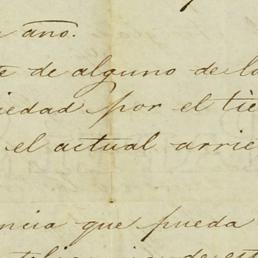 año.
de alguno de lo
iedad por el tie
el actual arrie
ncia que pueda